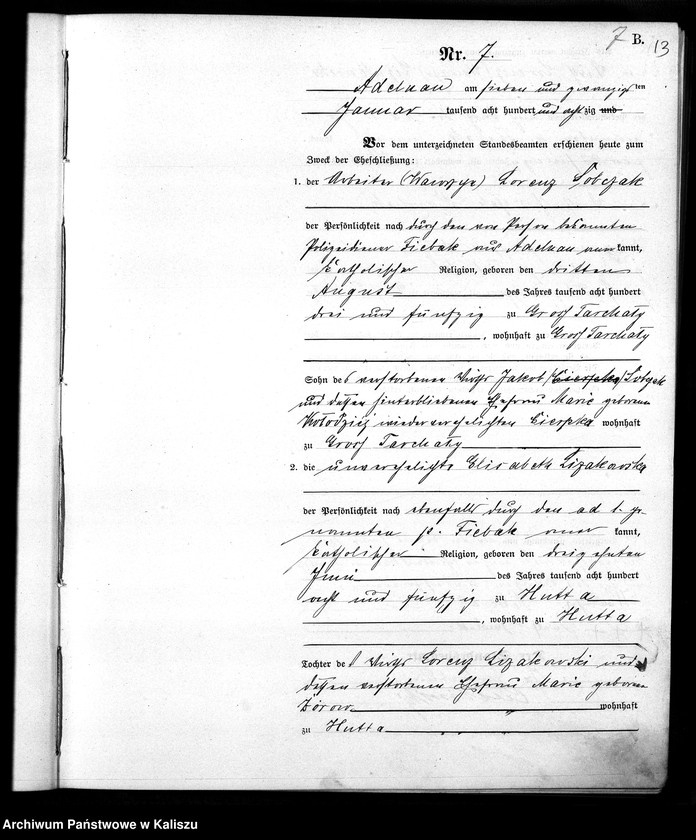 7 B. 13
Nr. 7.
Adelnau am sieben und zwanzigsten
Januar tausend acht hundert und acht zig und
Vor dem unterzeichneten Standesbeamten erschienen heute zum
Zweck der Eheschließung:
1. der Arbeiter (Wawrzyn) Lorenz Sobczak
der Persönlichkeit nach durch den von Person bekannten
Polizeidiener Fiebak aus Adelnau anerkannt,
katholischer Religion, geboren den dritten
August des Jahres tausend acht hundert
drei und fünfzig zu Gross Tarchaly
, wohnhaft zu Gross Tarchaly
Sohn des verstorbenen Wirths Jakob Cierpka Sobczak
und dessen hinterbliebenen Ehefrau Marie geborenen
wiederverehelichten Cierpka wohnhaft
zu Gross Tarchaly
2. die unverehelichte Elisabeth Lizakowska
der Persönlichkeit nach ebenfalls durch den ad 1. ge
nannten p. Fiebak aner kannt,
katholischer Religion, geboren den dreizehnten
Juni des Jahres tausend acht hundert
acht und fünfzig zu Hutta
, wohnhaft zu Hutta
Tochter des Wirths Lorenz Lizakowski und
dessen verstorbenen Ehefrau Marie geborene
wohnhaft
zu Hutta
Archiwum Państwowe w Kaliszu